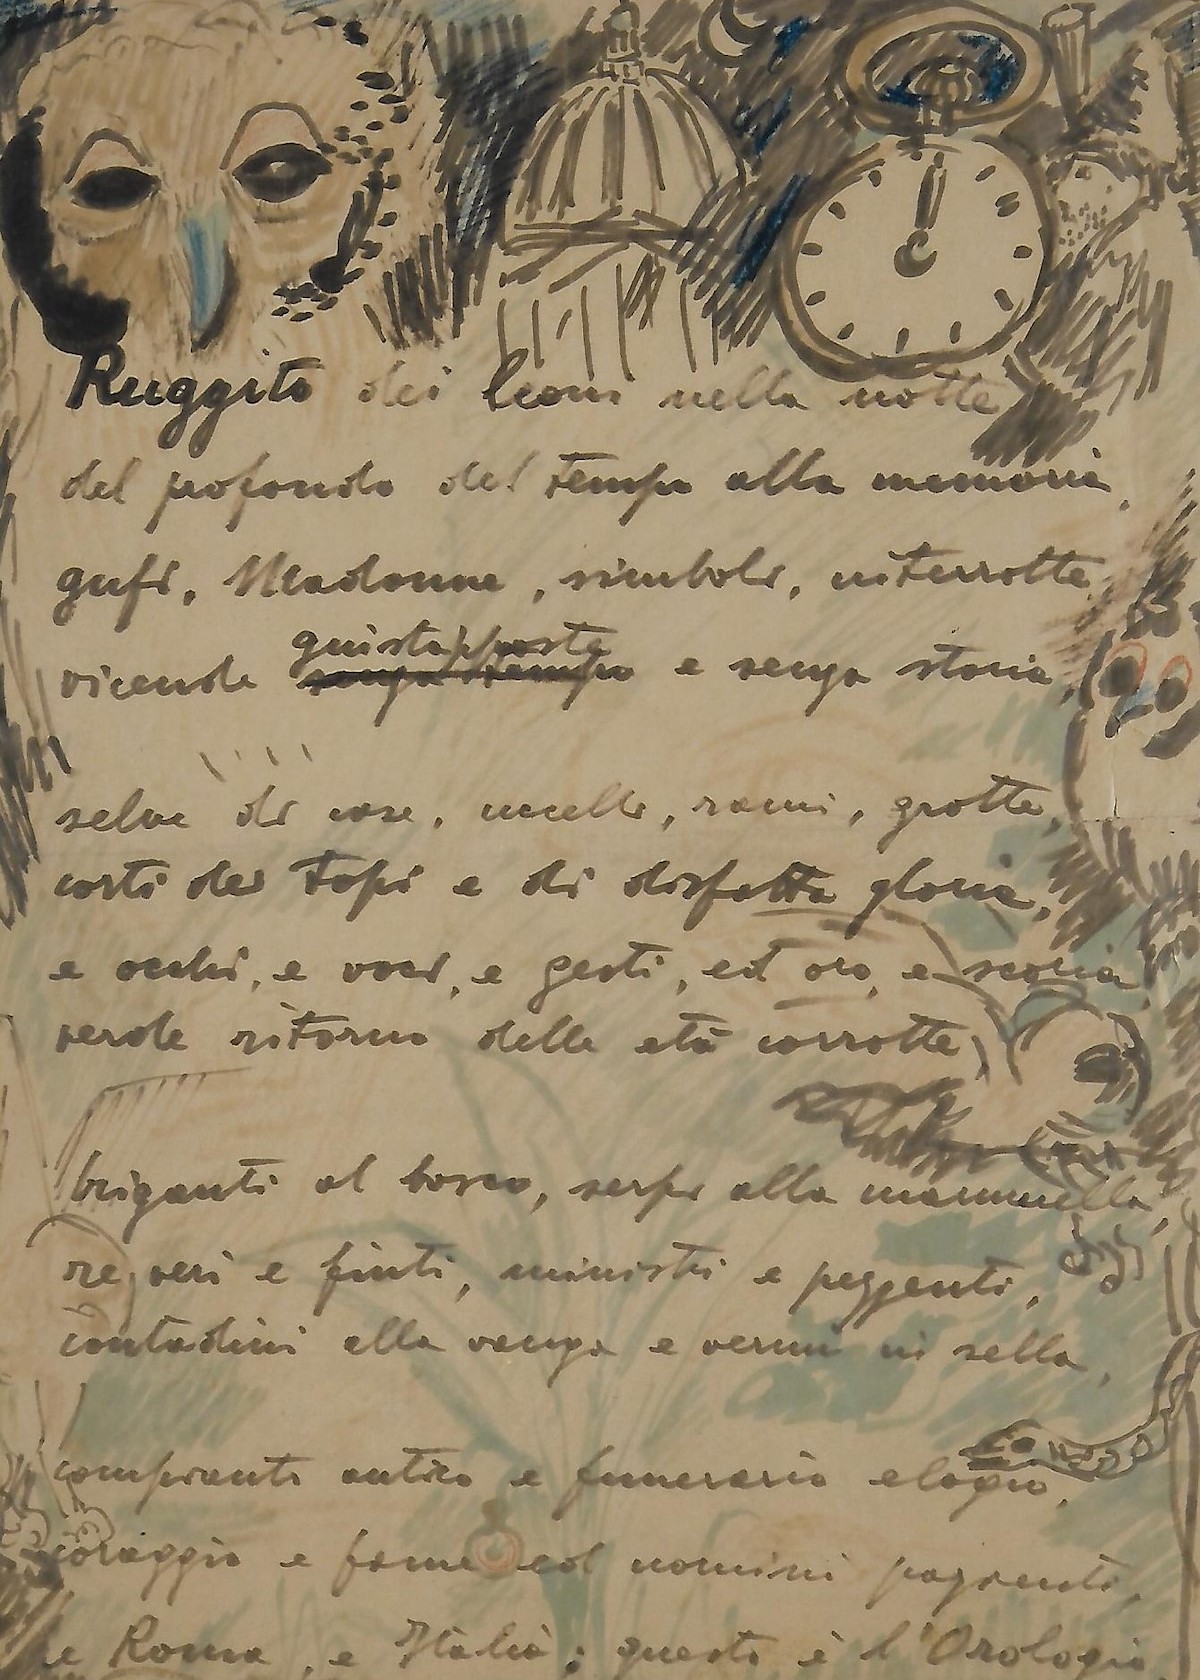 Ruggito dei leoni nella notte
del profondo del tempo alla memoria,
gufi, Madonne, simboli, interrotte
giustapposte
vicende senza tempo e senza storia,
selve di case, uccelli, rami, grotte,
corti dei topi e di disfatta gloria,
e occhi, e voci, e gesti, ed oro, e scoria
verde ritorno delle età corrotte,
briganti al bosco, serpi alla mammella,
re veri e finti, ministri e pezzenti,
contadini alla vanga e vermi in sella,
compianti antico e funerario elogio,
coraggio e fame ed uomini pazienti,
e Roma, e Italia; questo è l'Orologio